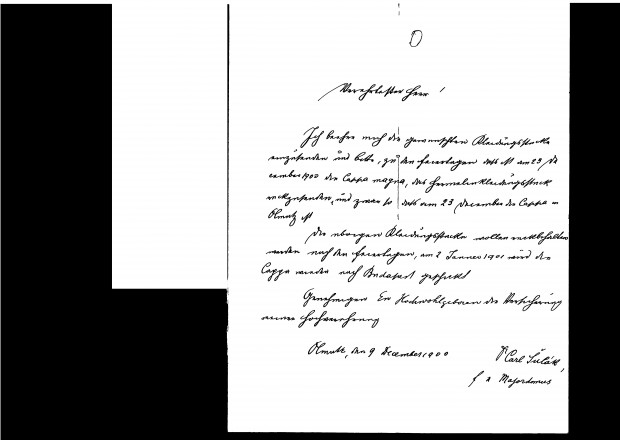 Verehrtester Herr!
Ich beehre mich die gewünschten Kleidungsstücke
einzusenden und bitte, zu den Feiertagen das ist am 23 De
cember 1900 die Cappa magna, das Hermelinkleidungsstück
rückzusenden, und zwar so das am 23 December die Cappa in
Olmütz ist
Die übrigen Kleidungsstücke wollen rückbehalten
werden nach den Feiertagen, am 2 Jänner 1901 wird die
Cappa wieder nach Budapest geschickt
Genehmigen Eu Hochwohlgeboren die Versicherung
meiner Hochverehrung
Olmütz, den 9 December 1900
Carl
f a Majordomus